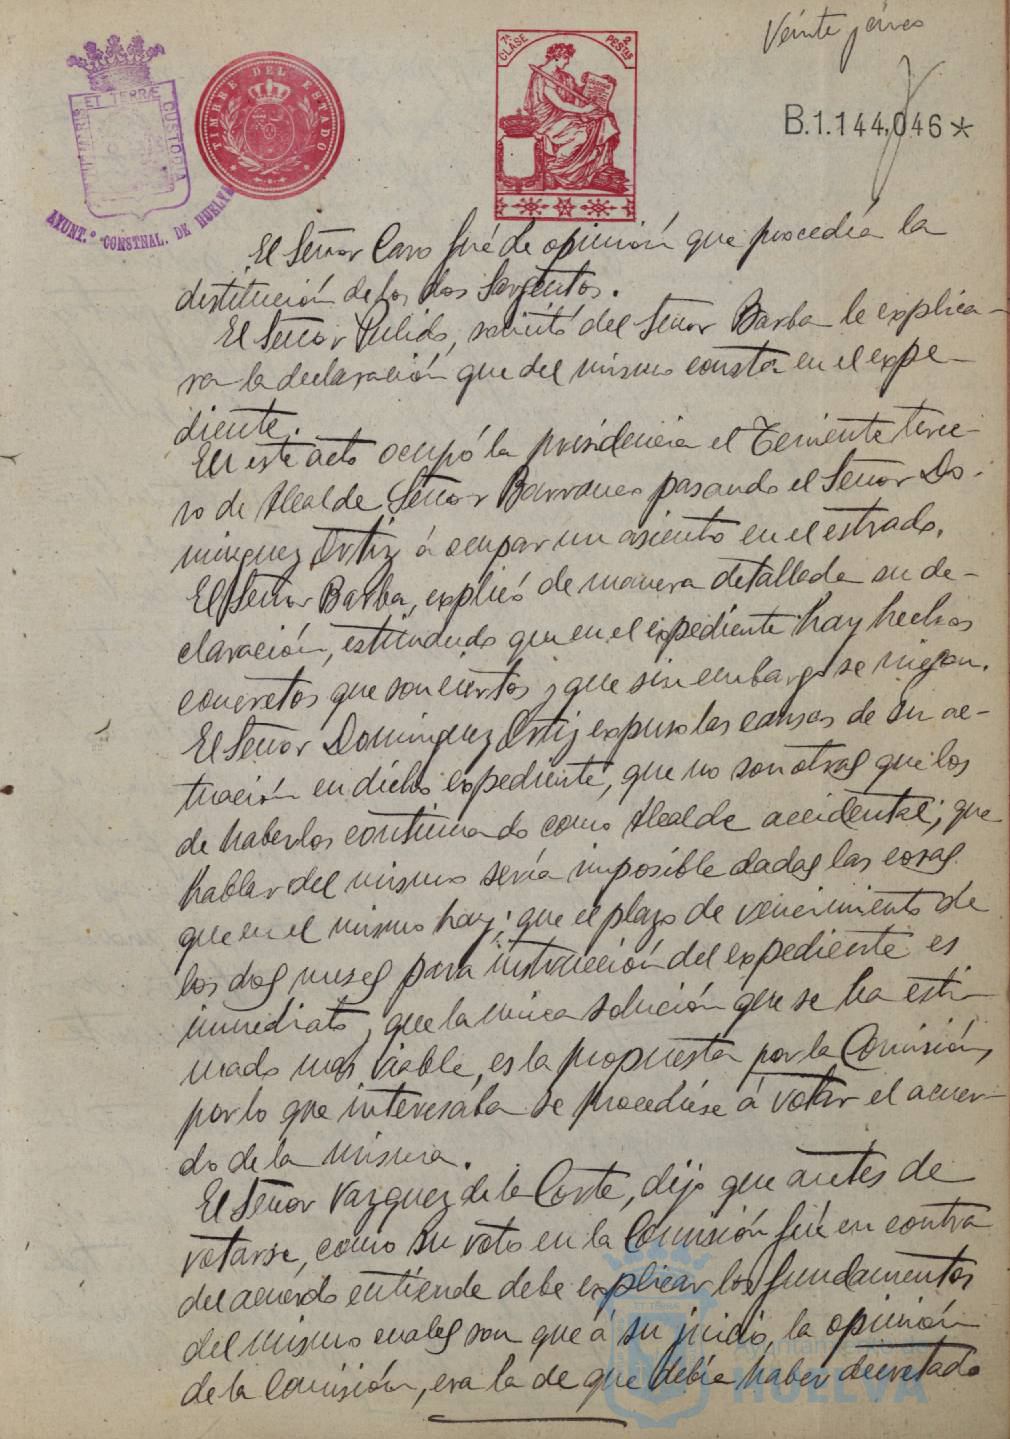 Veinte
B.1.144,046*
PORTUS MARIS ET TERRÆ CUSTODIA
AYUNT.º CONSTNAL. DE HUELVA
TIMBRE DEL ESTADO
7ª CLASE 2 PESTAS
El Señor Caro fué de opinión que procedía la
destitución de los dos Sargentos.
El Señor Pulido, solicitó del Señor Barba le explica-
ra la declaración que del mismo consta en el expe-
diente.
En este acto ocupó la presidencia el Teniente terce-
ro de Alcalde Señor Barranco pasando el Señor Do-
minguez Ortiz á ocupar un asiento en el estrado.
El Señor Barba, explicó de manera detallada su de-
claración, estimando que en el expediente hay hechos
concretos que son ciertos y que sin embargo se niegan.
El Señor Dominguez Ortiz expuso las causas de su ac-
tuación en dicho expediente, que no son otras que los
de haberlos continuado como Alcalde accidental; que
hablar del mismo sería imposible dadas las cosas
que en el mismo hay; que el plazo de vencimiento de
los dos meses para instrucción del expediente es
inmediato, que la única solución que se ha esti-
mado mas viable, es la propuesta por la Comisión,
por lo que interesaba se procediese á votar el acuer-
do de la misma.
El Señor Vazquez de la Corte, dijo que antes de
votarse, como su voto en la Comisión fué en contra
del acuerdo entiende debe explicar los fundamentos
del mismo cuales son que á su juicio, la opinión
de la Comisión, era la de que debía haber decretado
Ayuntamiento de
HUELVA